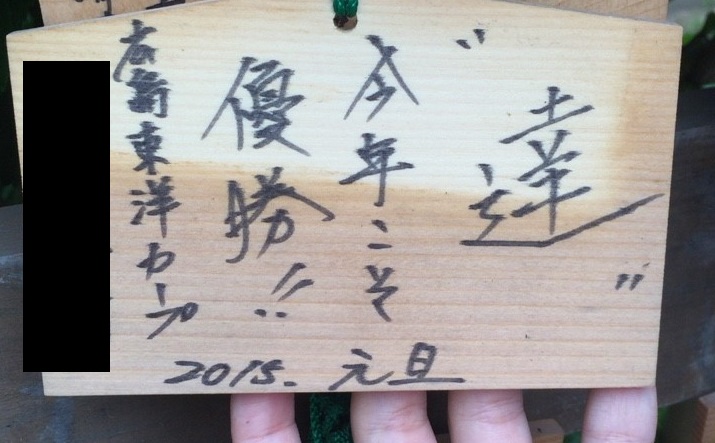 "達"
今年こそ
優勝!!
広島東洋カープ
2015. 元旦